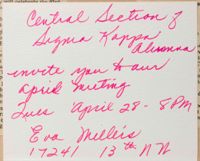 Central Section of
Sigma Kappa
Alumna
invite you to our
april meeting
Tues April 28 - 8 PM
Eva Millers
17241 13th NW